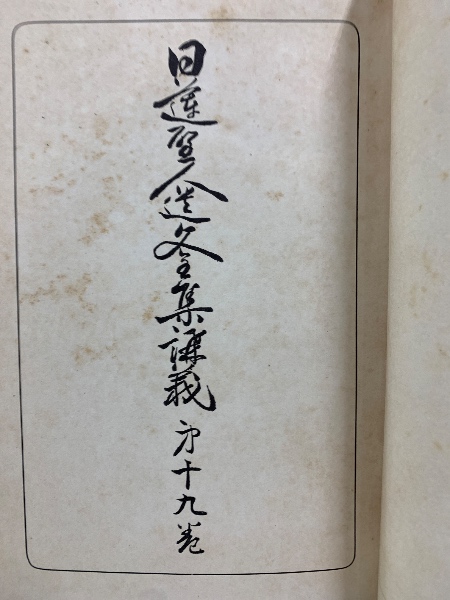 日蓮聖人遺文全集講義 第十九巻